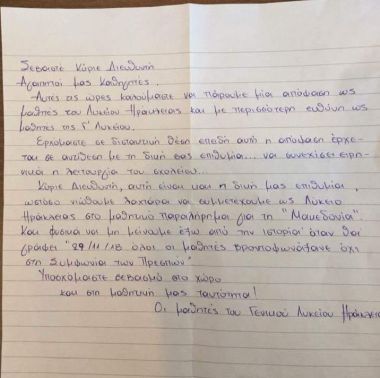 Σεβαστέ Κύριε Διευθυντή
Αγαπητοί μας Καθηγητές.
Αυτές τις ώρες καλούμαστε να πάρουμε μία απόφαση ως
μαθητές του Λυκείου Ηράκλειας και με περισσότερη ευθύνη ως
μαθητές της Γ' Λυκείου.
Ερχόμαστε σε δισταυτική θέση επειδή αυτή η απόφαση έρχε-
ται σε αντίθεση με τη δική σας επιθυμία... να συνεχίσει ειρη-
νικά η λειτουργία του σχολείου...
Κύριε Διευθυντή, αυτή είναι και η δική μας επιθυμία,
ωστόσο νιώθουμε λαχτάρα να συμμετέχουμε ως Λύκειο
Ηράκλειας στο μαθητικό παραλήρημα για τη "Μακεδονία".
Και φυσικά να μη μείνουμε έξω από την ιστορία! όταν θα
γράφει "29/11/18 όλοι οι μαθητές βροντοφωνάξανε όχι
στη Συμφωνία των Πρεσπών"
Υποσχόμαστε σεβασμό στο χώρο
και στη μαθητική μας ταυτότητα!
Οι μαθητές του Γενικού Λυκείου Ηράκλειας